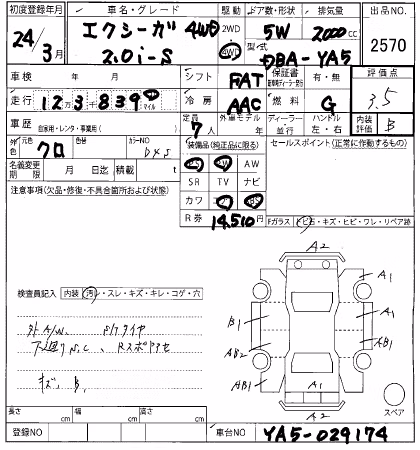 初度登録年月 車名・グレード 駆動 ドア数・形状 排気量 出品NO.
24年3月 エクシーガ 4WD 2WD 4WD 5W 2000cc 2570
2.0i-S 型式 DBA-YA5
車検 年 月 シフト FAT 保証書 有・無 評価点
走行 12万3千839 マイル 冷房 AAC 燃料 G 3.5
車歴 自家用・レンタ・事業用( ) 定員 7人 外車モデル 年 ディーラー 並行 ハンドル 左・右 内装評価 B
外色 元色 クロ 色替 カラーNO D4S 装備品(純正品に限る) セールスポイント(正常に作動するもの)
名義変更期限 月 日迄 積載 t PS PW AW
SR TV ナビ
注意事項(欠品・修復・不具合箇所および状態) カワ
R券 14,510円 Fガラス トビ石・キズ・ヒビ・ワレ・リペア跡
A2
A1
検査員記入 内装 汚レ・スレ・キズ・キレ・コゲ・穴
B1 A1
外A/W. タイヤ
AB2 AB1
キズ. B.
AB1 A1 AB1
A2 スペア
長さ cm 幅 cm 高さ cm
登録NO 車台NO YA5-029174